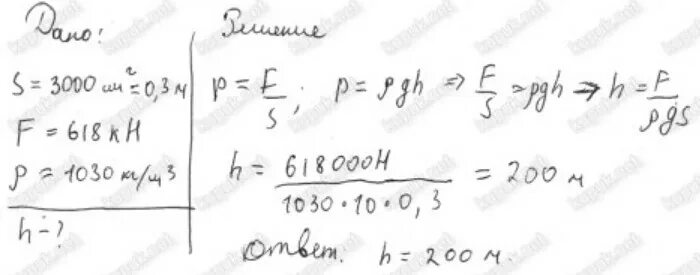 Дано:
S = 3000 см² = 0,3 м
F = 618 кН
ρ = 1030 кг/м3
h - ?
Решение
p = F/S ; p = ρgh ⇒ F/S = ρgh → h = F/ρgS
h = 618000Н / 1030·10·0,3 = 200 м
Ответ. h = 200 м.